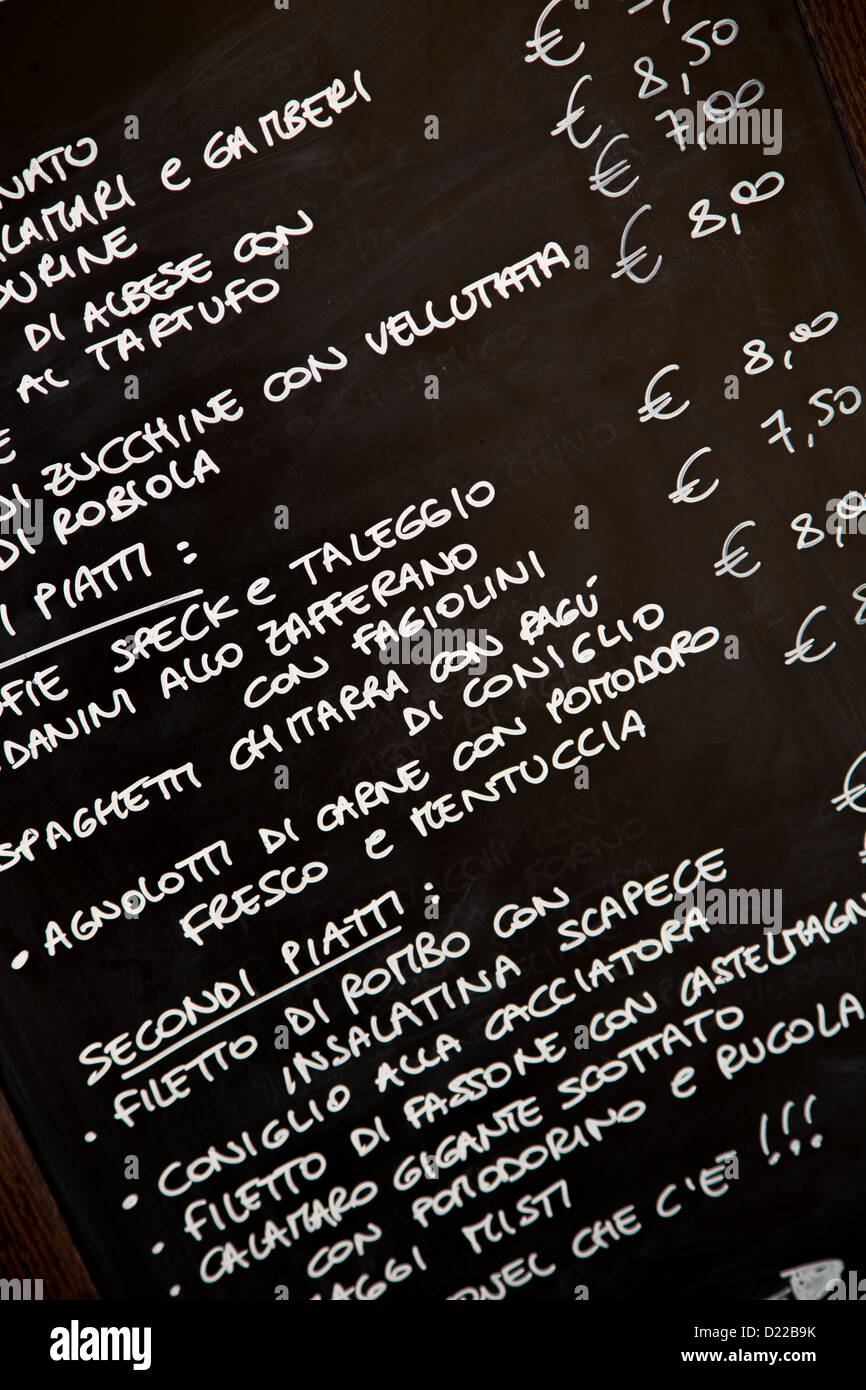 €
€ 8,50
€ 7,00
CALAMARI e GAMBERI
DI ALBESE CON € 8,00
AL TARTUFO
DI ZUCCHINE CON VELLUTATA € 8,00
DI ROBIOLA
€ 7,50
I PIATTI:
SPECK e TALEGGIO € 8,00
DANINI ALLO ZAFFERANO € 8
CON FAGIOLINI
SPAGHETTI CHITARRA CON RAGÚ
DI CONIGLIO
• AGNOLOTTI DI CARNE CON POMODORO €
FRESCO e MENTUCCIA
SECONDI PIATTI:
• FILETTO DI ROMBO CON
INSALATINA SCAPECE
• CONIGLIO ALLA CACCIATORA
• FILETTO DI FASSONE CON CASTELMAGN
• CALAMARO GIGANTE SCOTTATO
CON POMODORINO e RUCOLA
AGGI MISTI
QUEL CHE C'È !!!
alamy
Image ID: D22B9K
www.alamy.com